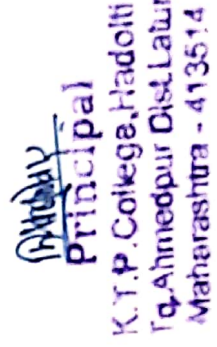 Principal
K.T.P. Collega, Hadolti
Tq. Ahmedpur Dist. Latur
Maharashtra - 413514